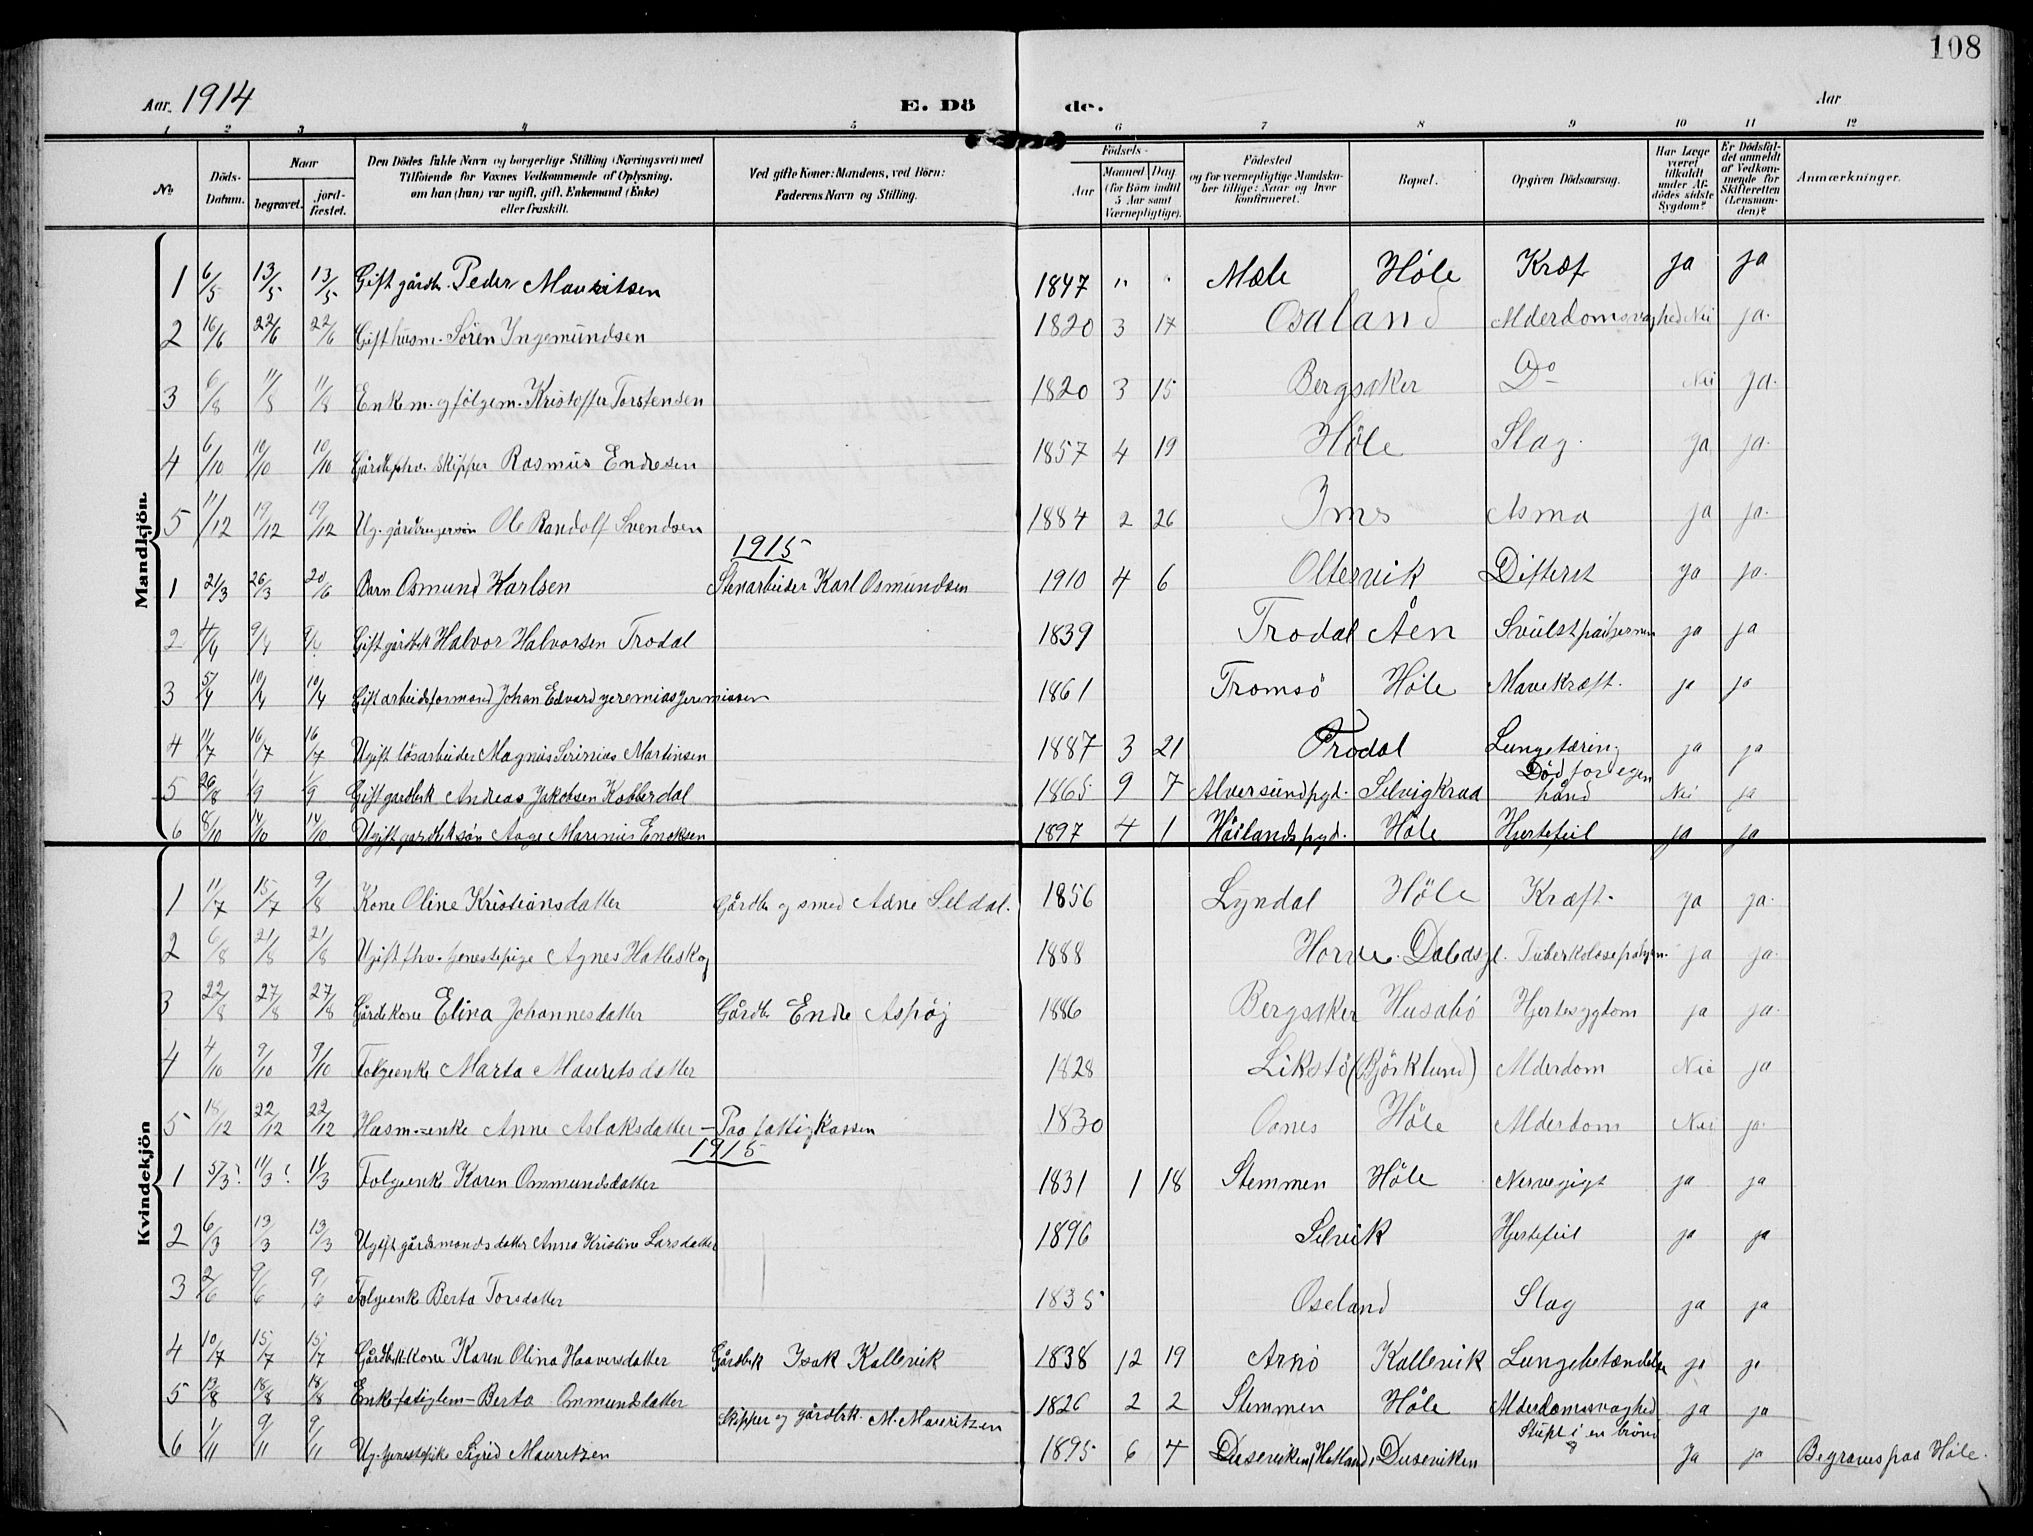 108
Aar. 1914 E. Dö de. Aar
1 2 3 4 5 6 7 8 9 10 11 12
No. Döds-Datum. Naar begravet. jord-fæstet. Den Dödes fulde Navn og borgerlige Stilling (Næringsvei) med Tilföiende for Voxnes Vedkommende af Oplysning, om han (hun) var ugift, gift, Enkemand (Enke) eller fraskilt. Ved gifte Koner: Mandens, ved Börn: Faderens Navn og Stilling. Födsels- Aar Maaned (for Börn indtil 5 Aar samt Værnepligtige). Dag Födested og for værnepligtige Mandska-ber tillige: Naar og hvor konfirmeret. Bopæl. Opgiven Dödsaarsag. Har Læge været tilkaldt under Af-dödes sidste Sygdom? Er Dödsfal-det anmeldt af Vedkom-mende for Skifteretten (Lensman-den)? Anmærkninger.
Mandkjön.
1 6/5 13/5 13/5 Gift gårdbr. Peder Mauritsen 1847 " " Mæle Höle Kræf ja ja
2 16/6 22/6 22/6 Gift husm. Sören Ingemundsen 1820 3 17 Osaland Alderdomsvaghed Nei ja.
3 6/8 11/8 11/8 Enkem. og fölgem. Kristoffer Torstensen 1820 3 15 Bergsaker Do Nei ja.
4 6/10 10/10 10/10 Skipper Rasmus Endresen 1857 4 19 Höle Slag. ja ja.
5 11/12 19/12 19/12 Ug. Ole Randolf Svendsen 1884 2 26 Ims Asma ja ja.
1915
1 21/3 26/3 20/6 Barn Osmund Karlsen Stenarbeider Karl Osmundsen 1910 4 6 Oltervik Difterit ja ja.
2 4/4 9/4 Gift gårdbrk Halvor Halvorsen Trodal 1839 Trodal Åen Svulst på hjernen ja ja
3 5/4 10/4 10/4 Gift arbeidsformand Johan Edvard Jeremias Jeremiasen 1861 Tromsö Höle Mavekræft. ja ja
4 11/7 16/7 16/7 Ugift lösarbeider Magnus Sirinius Martinsen 1887 3 21 Trodal Lungetæring ja ja
5 26/8 1/9 1/9 Gift gardbrk Andreas Jakobsen Kobberdal 1865 9 7 Alversund pgd. Selvigkraa Död for egen hånd Nei ja
6 8/10 14/10 14/10 Ugift gardbrksön Aage Marenius Enoksen 1897 4 1 Höilands pgd. Höle Hjertefeil ja ja
Kvindekjön
1 11/7 15/7 9/8 Kone Oline Kristiansdatter Gårdbr og smed Adne Seldal. 1856 Lyndal Höle Kræft. ja ja.
2 6/8 21/8 21/8 Ugift fhv. tjenestepige Agnes Hatleskog 1888 Horve. ja ja.
3 22/8 27/8 27/8 Gårdbrkone Elina Johannesdatter Gårdbr Endre Aspöy 1886 Bergsaker Husabö Hjertesygdom ja ja.
4 4/10 9/10 9/10 Folgeenke Marta Mauritsdatter 1828 Likstö (Björklund) Alderdom Nei ja
5 18/12 22/12 22/12 Husm-enke Anne Aslaksdatter - Paa fattigkassen 1830 Oanes Höle Alderdom Nei ja.
1915
1 5/3? 11/3? 11/3 Folgeenke Karen Ommundsdatter 1831 1 18 Stemmen Höle Nervegigt ja ja
2 6/3 13/3 13/3 Ugift gårdmandsdatter Anna Kristine Larsdatter 1896 Selvik Hjertefeil ja ja
3 2/6 9/6 9/6 Folgeenke Berta Torsdatter 1835 Oseland Slag ja ja
4 10/7 15/7 15/7 Gårdbrk.kone Karen Olina Haaversdatter Gårdbrk Isak Kallevik 1838 12 19 Arnö Kallevik Lungebetændelse ja ja
5 12/8 18/8 18/8 Enke-fatiglem - Berta Ommundsdatter 1826 2 2 Stemmen Höle Alderdomsvaghed ja ja
6 1/11 9/11 9/11 Ug. tjenestepike Sigrid Mauritzen Skipper og gårdbrk. M. Mauritzen 1895 6 4 Duseviken (Hetland) Duseviken Stupt i en brönd ja ja Begraves paa Höle.